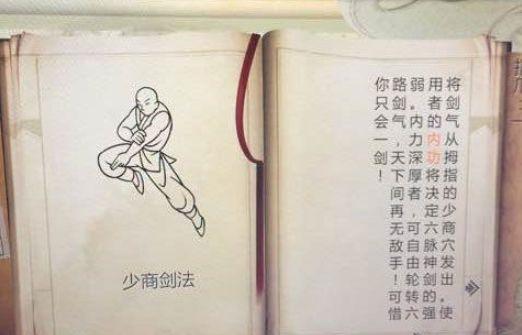 少商剑法
将剑气从拇指的少商穴发出。使
用者的内功将决定六脉神剑的强
弱。内力深厚者，可自由轮转六
路剑气，天下间再无敌手！可惜
你只会一剑！